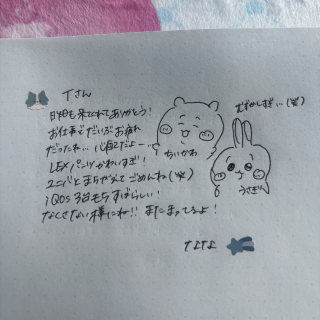 Tさん
昨日も来てくれてありがとう!
お仕事でだいぶお疲れ
だったね… 心配だよー…
LEXパンツかわいすぎ!
ユニバとまちがえてごめんね(笑)
iQOS 3台もちすばらしい!
なくさない様にね!! またまってるよ!
なよなよ
ちいかわ
むずかしすぎ…(笑)
うさぎ